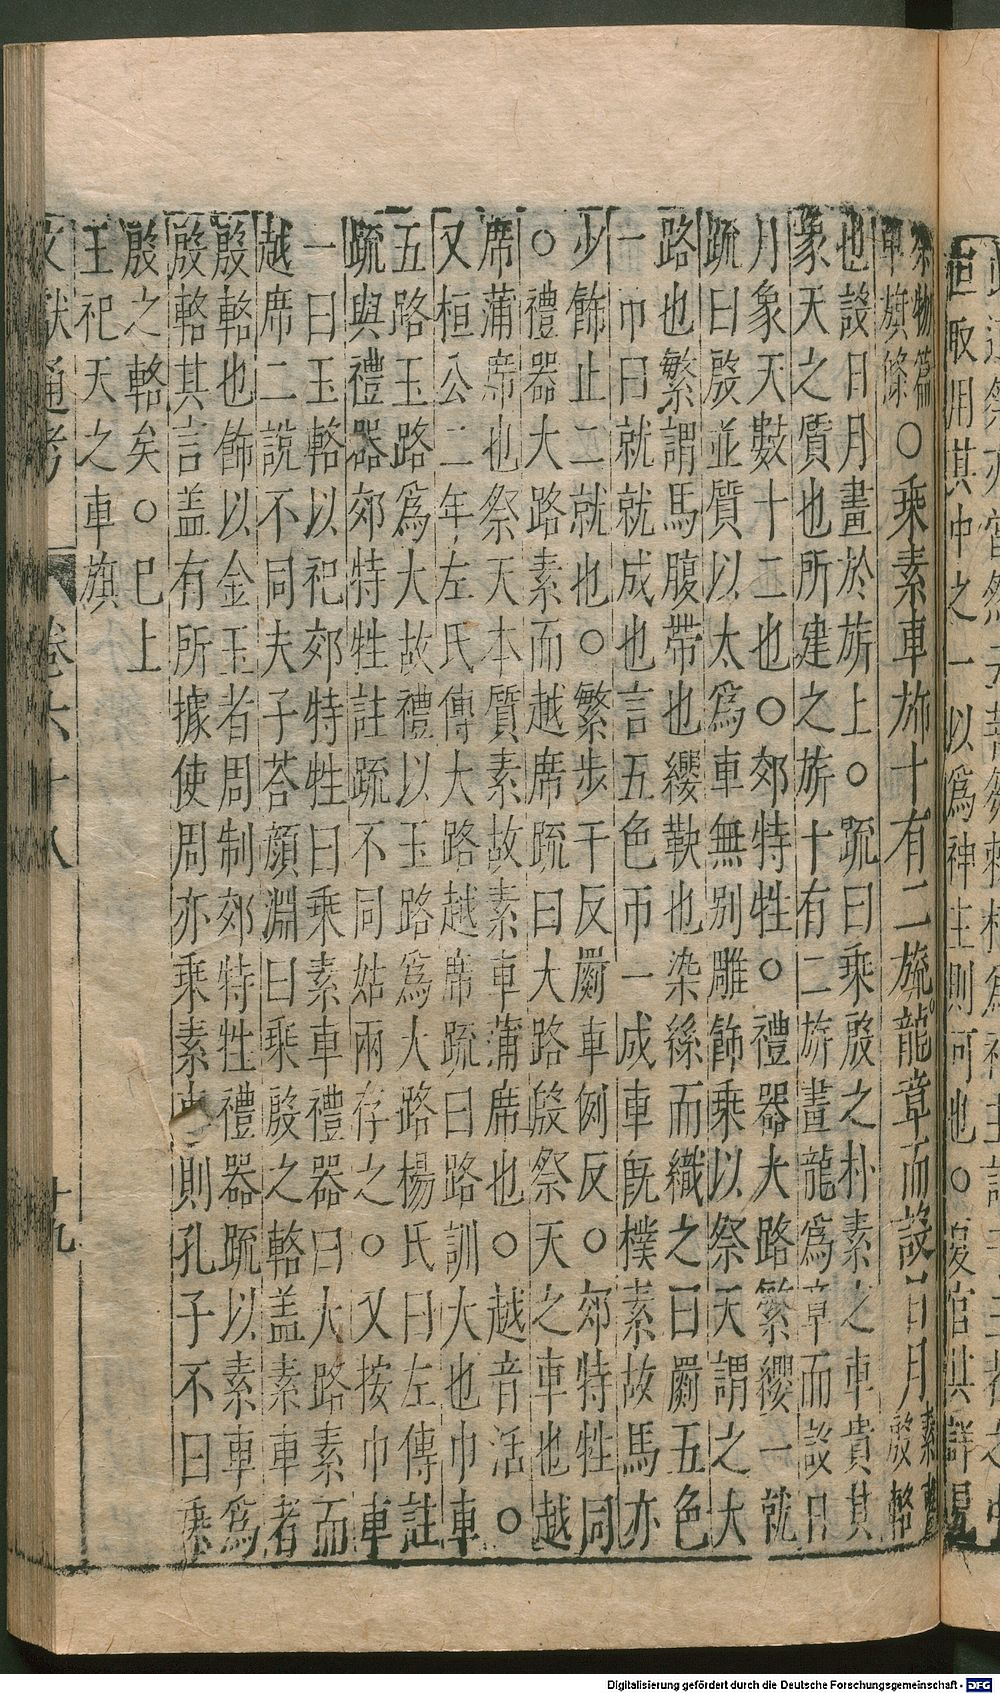 恒取用其中之一以爲神主則何也○
物篇
車旗條○乘素車旂十有二旒龍章而設日月素車
殷輅
也設日月畫於旂上○疏曰乘殷之朴素之車貴其
象天之質也所建之旂十有二旂畫龍爲章而設日
月象天數十二也○郊特牲○禮器大路繁纓一就
疏曰殷並質以太爲車無別雕飾乘以祭天謂之大
路也繁謂馬腹帶也纓鞅也染絲而織之曰罽五色
一巾曰就就成也言五色帀一成車旣樸素故馬亦
少飾止二就也○繁步干反罽車例反○郊特牲同
○禮器大路素而越席疏曰大路殷祭天之車也越
席蒲席也祭天本質素故素車蒲席也○越音活○
又桓公二年左氏傳大路越席疏曰路訓大也巾車
五路玉路爲大故禮以玉路爲大路楊氏曰左傳註
疏與禮器郊特牲註疏不同姑兩存之○又按巾車
一曰玉輅以祀郊特牲曰乘素車禮器曰大路素而
越席二說不同夫子荅顏淵曰乘殷之輅盖素車者
殷輅也飾以金玉者周制郊特牲禮器疏以素車爲
殷輅其言盖有所據使周亦乘素車則孔子不曰乘
殷之輅矣○巳上
王祀天之車旗
文獻通考 卷六十八 十九
Digitalisierung gefördert durch die Deutsche Forschungsgemeinschaft - DFG